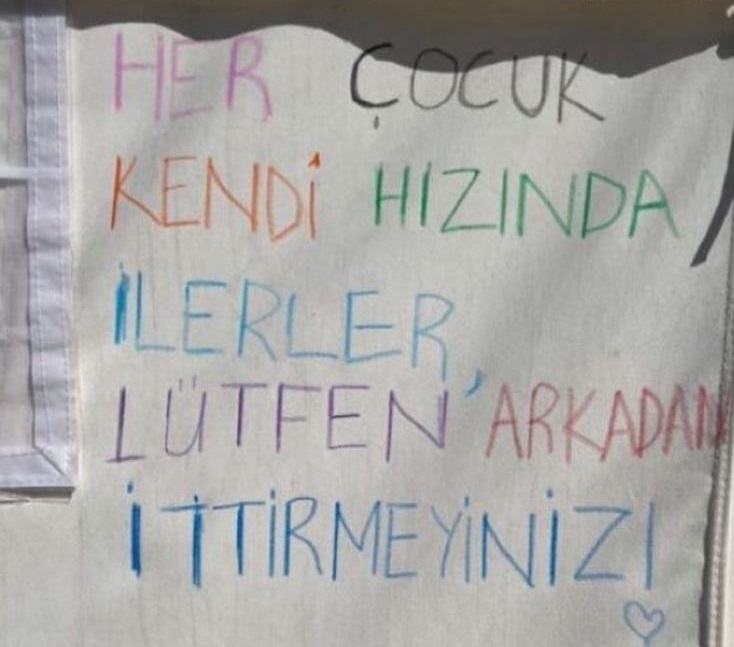 HER ÇOCUK
KENDİ HIZINDA
İLERLER,
LÜTFEN ARKADAN
İTTİRMEYİNİZ!